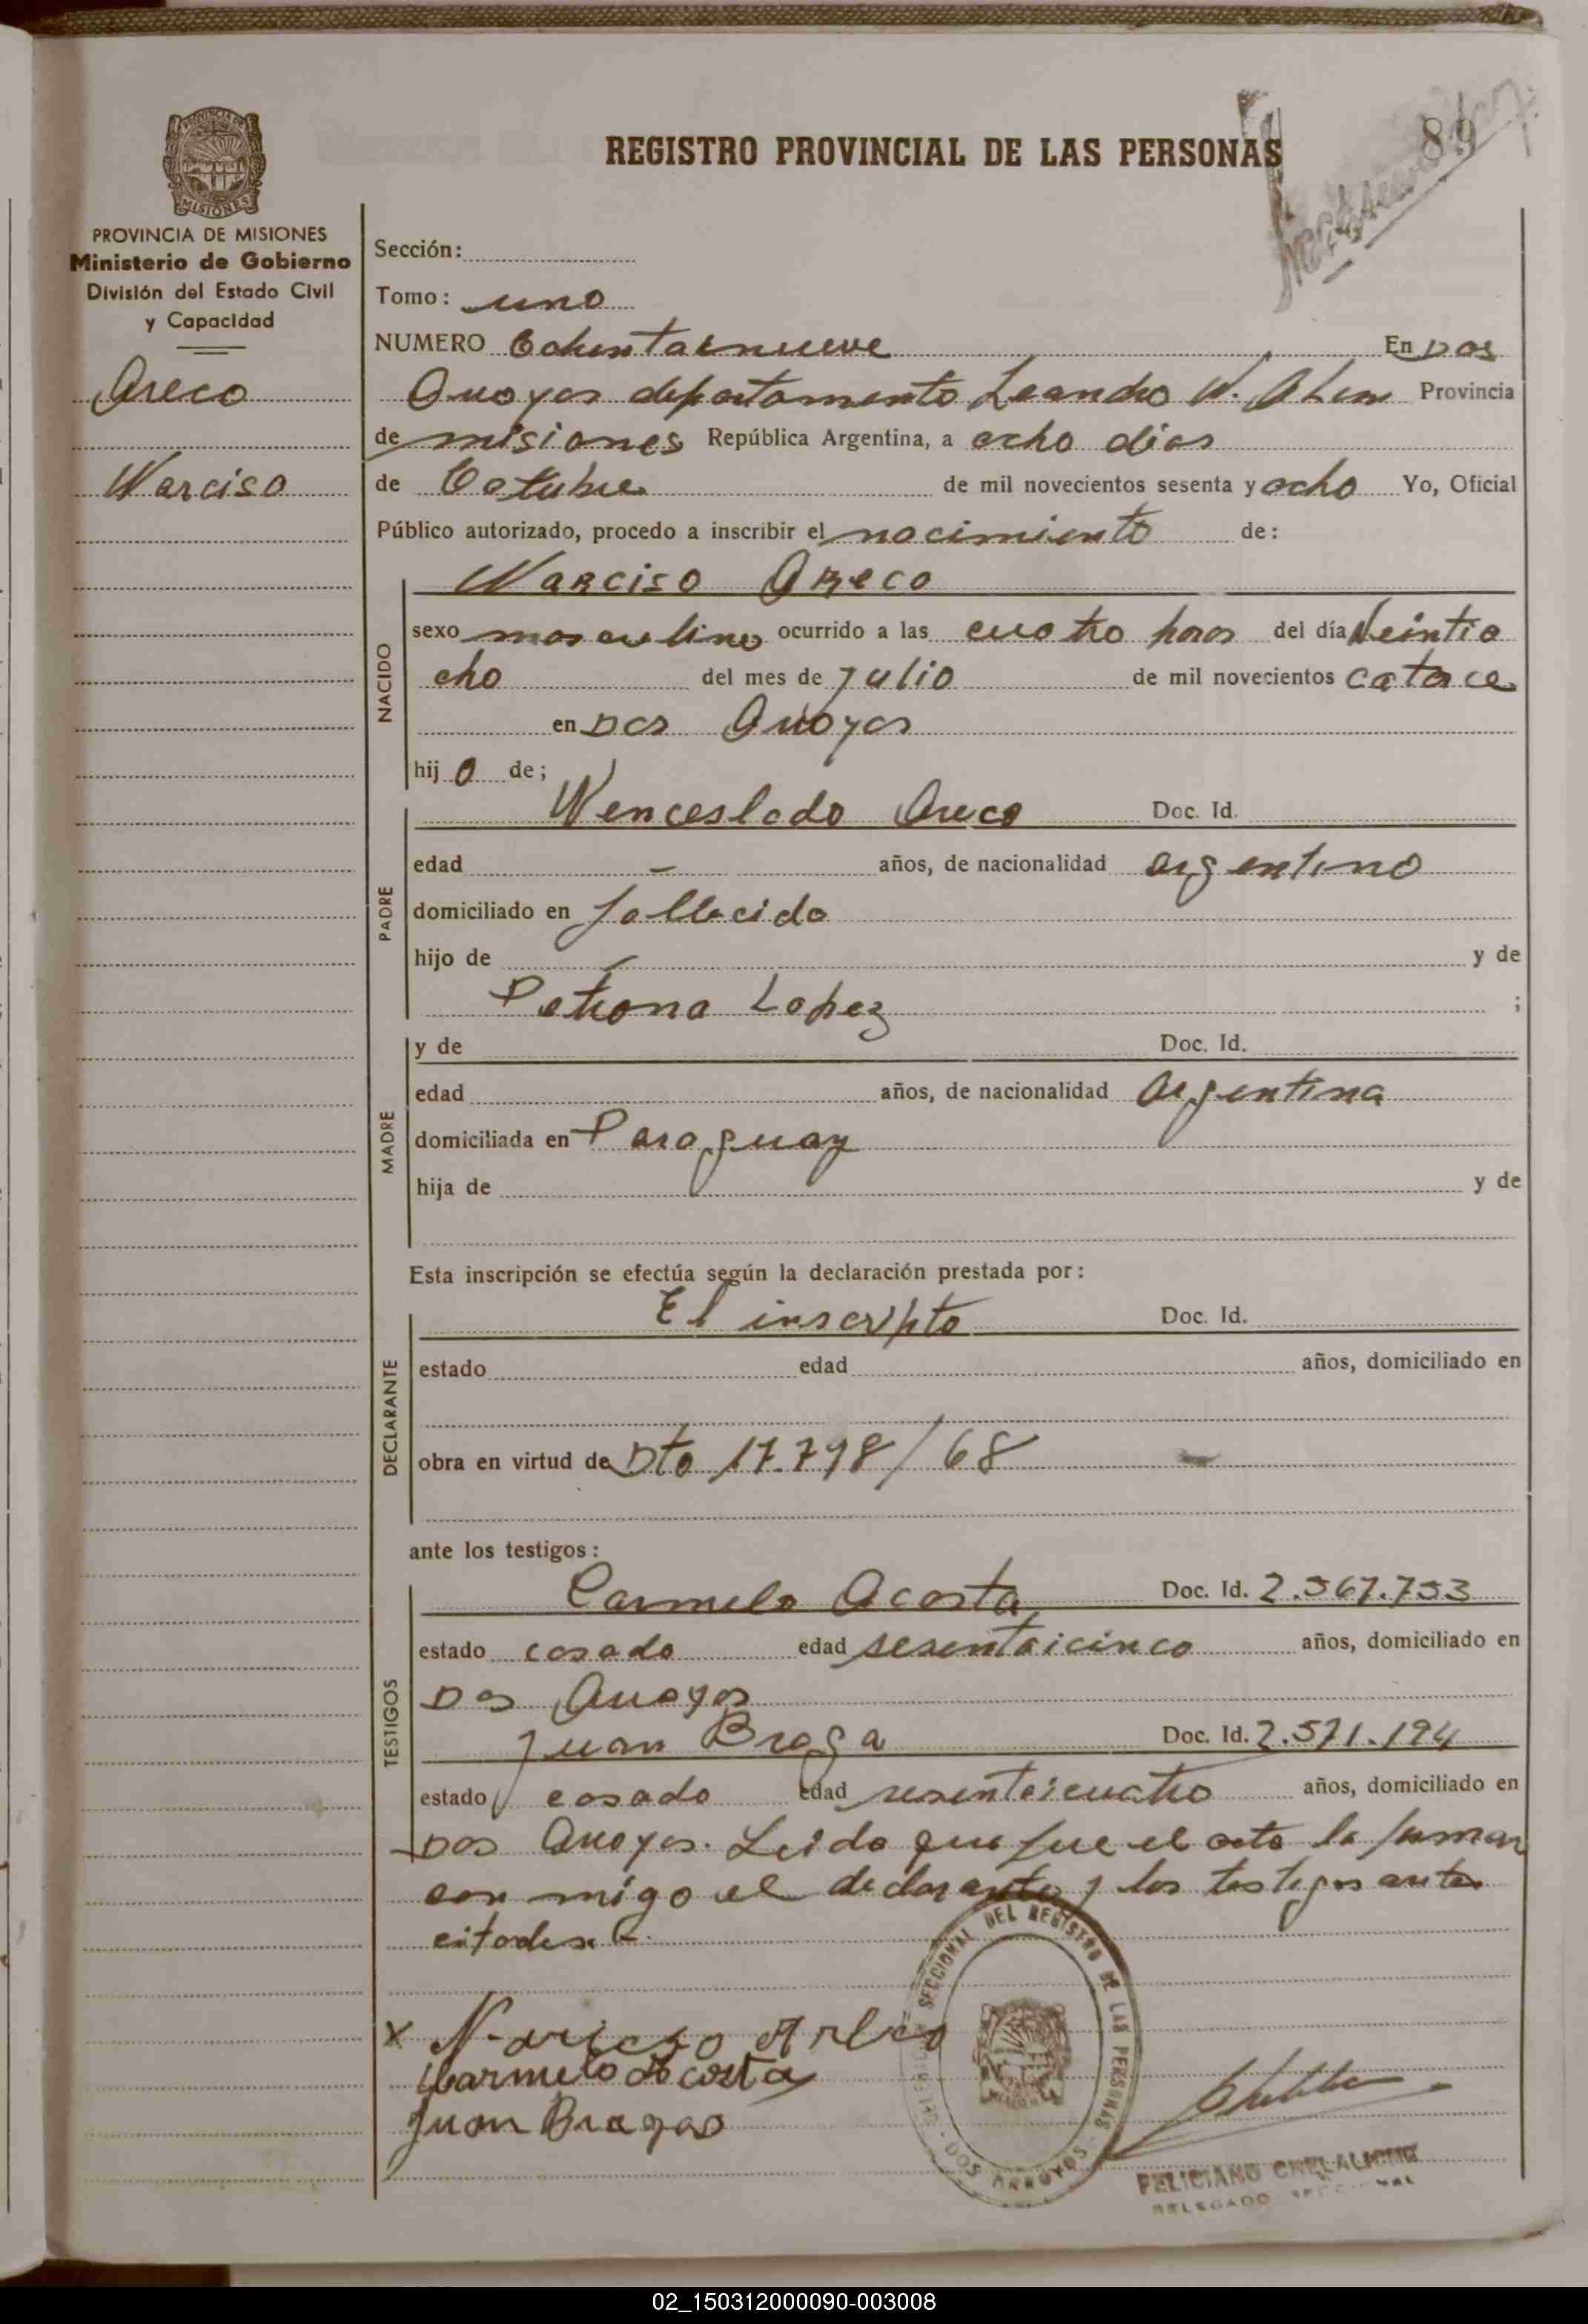 89
REGISTRO PROVINCIAL DE LAS PERSONAS
PROVINCIA DE MISIONES
Ministerio de Gobierno
División del Estado Civil
y Capacidad
Areco
Narciso
Sección:
Tomo: uno
NUMERO Ochentainueve En Dos
Arroyos departamento Leandro N. Alem Provincia
de misiones República Argentina, a ocho dias
de Octubre de mil novecientos sesenta y ocho Yo, Oficial
Público autorizado, procedo a inscribir el nacimiento de:
Narciso Areco
NACIDO
sexo masculino ocurrido a las cuatro horas del día Veintio
cho del mes de Julio de mil novecientos catorce
en Dos Arroyos
hijo de;
PADRE
Wenceslado Areco Doc. Id.
edad – años, de nacionalidad argentino
domiciliado en fallecido
hijo de – y de
Petrona Lopez ;
MADRE
y de Doc. Id.
edad años, de nacionalidad Argentina
domiciliada en Paraguay
hija de y de
Esta inscripción se efectúa según la declaración prestada por:
DECLARANTE
El inscripto Doc. Id.
estado edad años, domiciliado en
obra en virtud de Dto 17.798/68
ante los testigos:
TESTIGOS
Carmelo Acosta Doc. Id. 2.567.753
estado casado edad sesentaicinco años, domiciliado en
Dos Arroyos
Juan Braga Doc. Id. 2.571.194
estado casado edad sesentaicuatro años, domiciliado en
Dos Arroyos. Leida que fue el acta la firman
con migo el declarante y los testigos antes
citados.
x Narciso Areco
Carmelo Acosta
Juan Bragas
SECCIONAL DEL REGISTRO DE LAS PERSONAS
DOS ARROYOS
FELICIANO
DELEGADO SECCIONAL
02_150312000090-003008